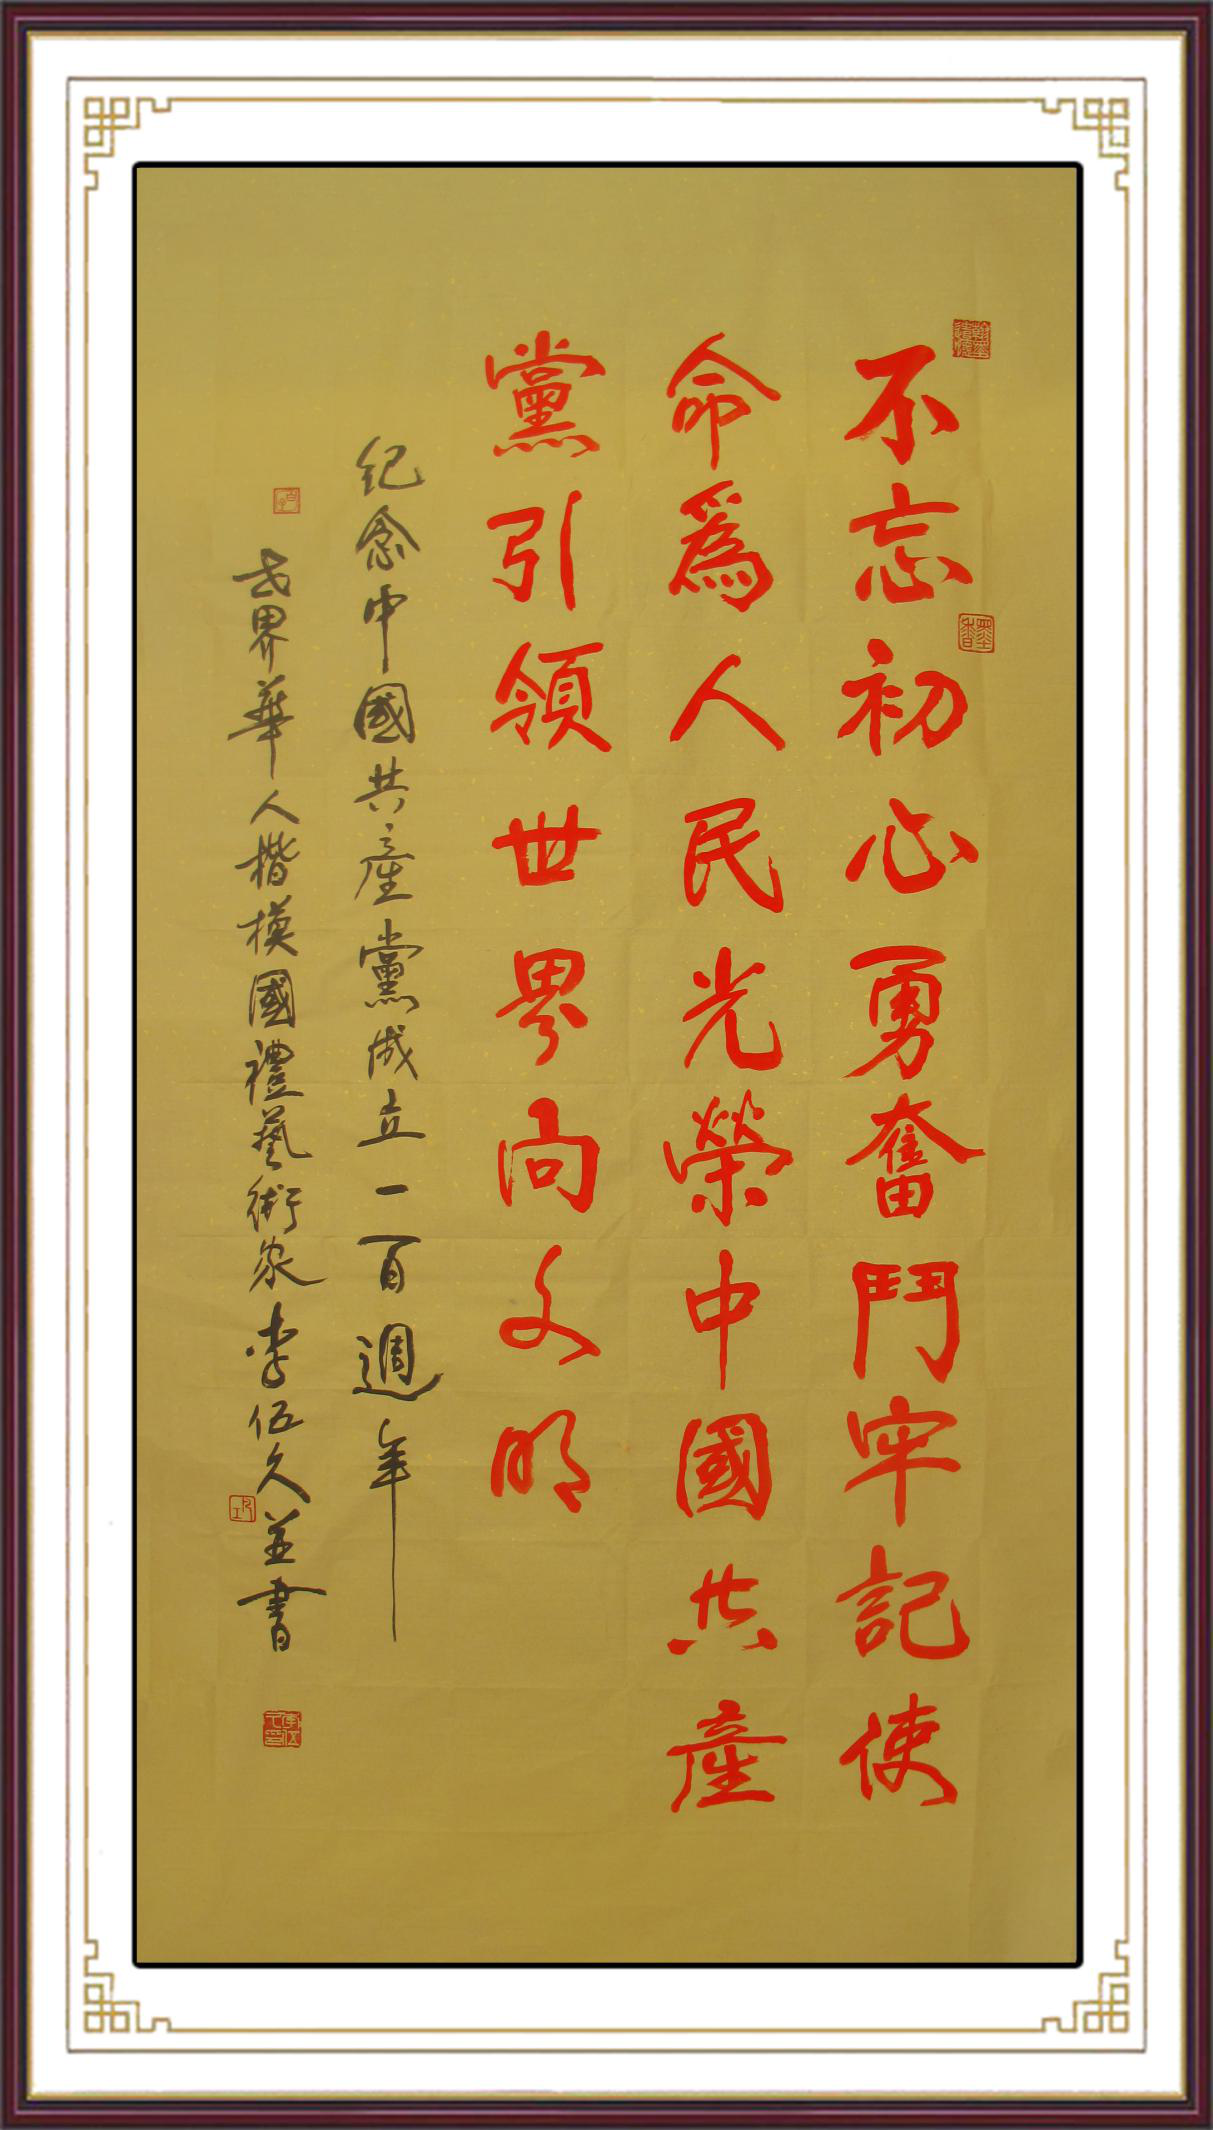 不忘初心勇奮鬥牢記使
命爲人民光榮中國共産
黨引領世界向文明
纪念中國共産黨成立一百週年
世界華人楷模國禮藝術家李伍久並書
墨香